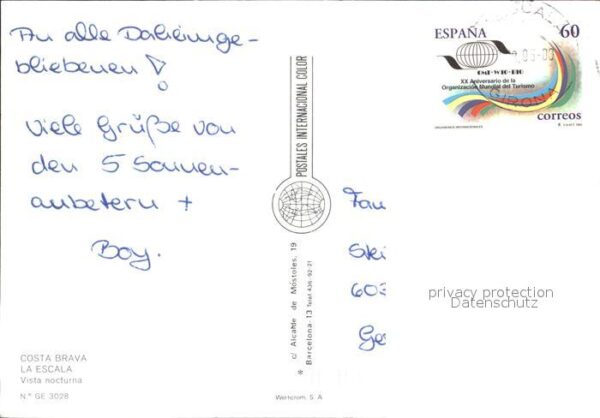 An alle Daheimge-
bliebenen!
Viele Grüße von
den 5 Sonnen-
anbetern +
Boy.
COSTA BRAVA
LA ESCALA
Vista nocturna
N.º GE 3028
POSTALES INTERNACIONAL COLOR
c/ Alcalde de Móstoles, 19
* Barcelona-13 Telef. 436-92-21
Wertcrom, S. A.
ESPAÑA 60
OMT-WTO-BTO
XX Aniversario de la
Organización Mundial del Turismo
GIRONA
correos
ORGANISMOS INTERNACIONALES
Fam
603
privacy protection
Datenschutz